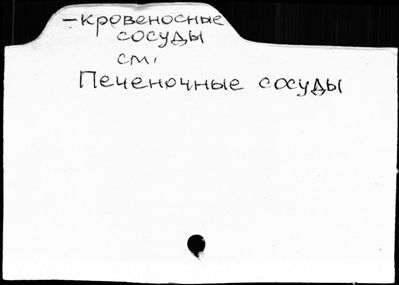 -кровеносные
сосуды
см.
Печеночные сосуды